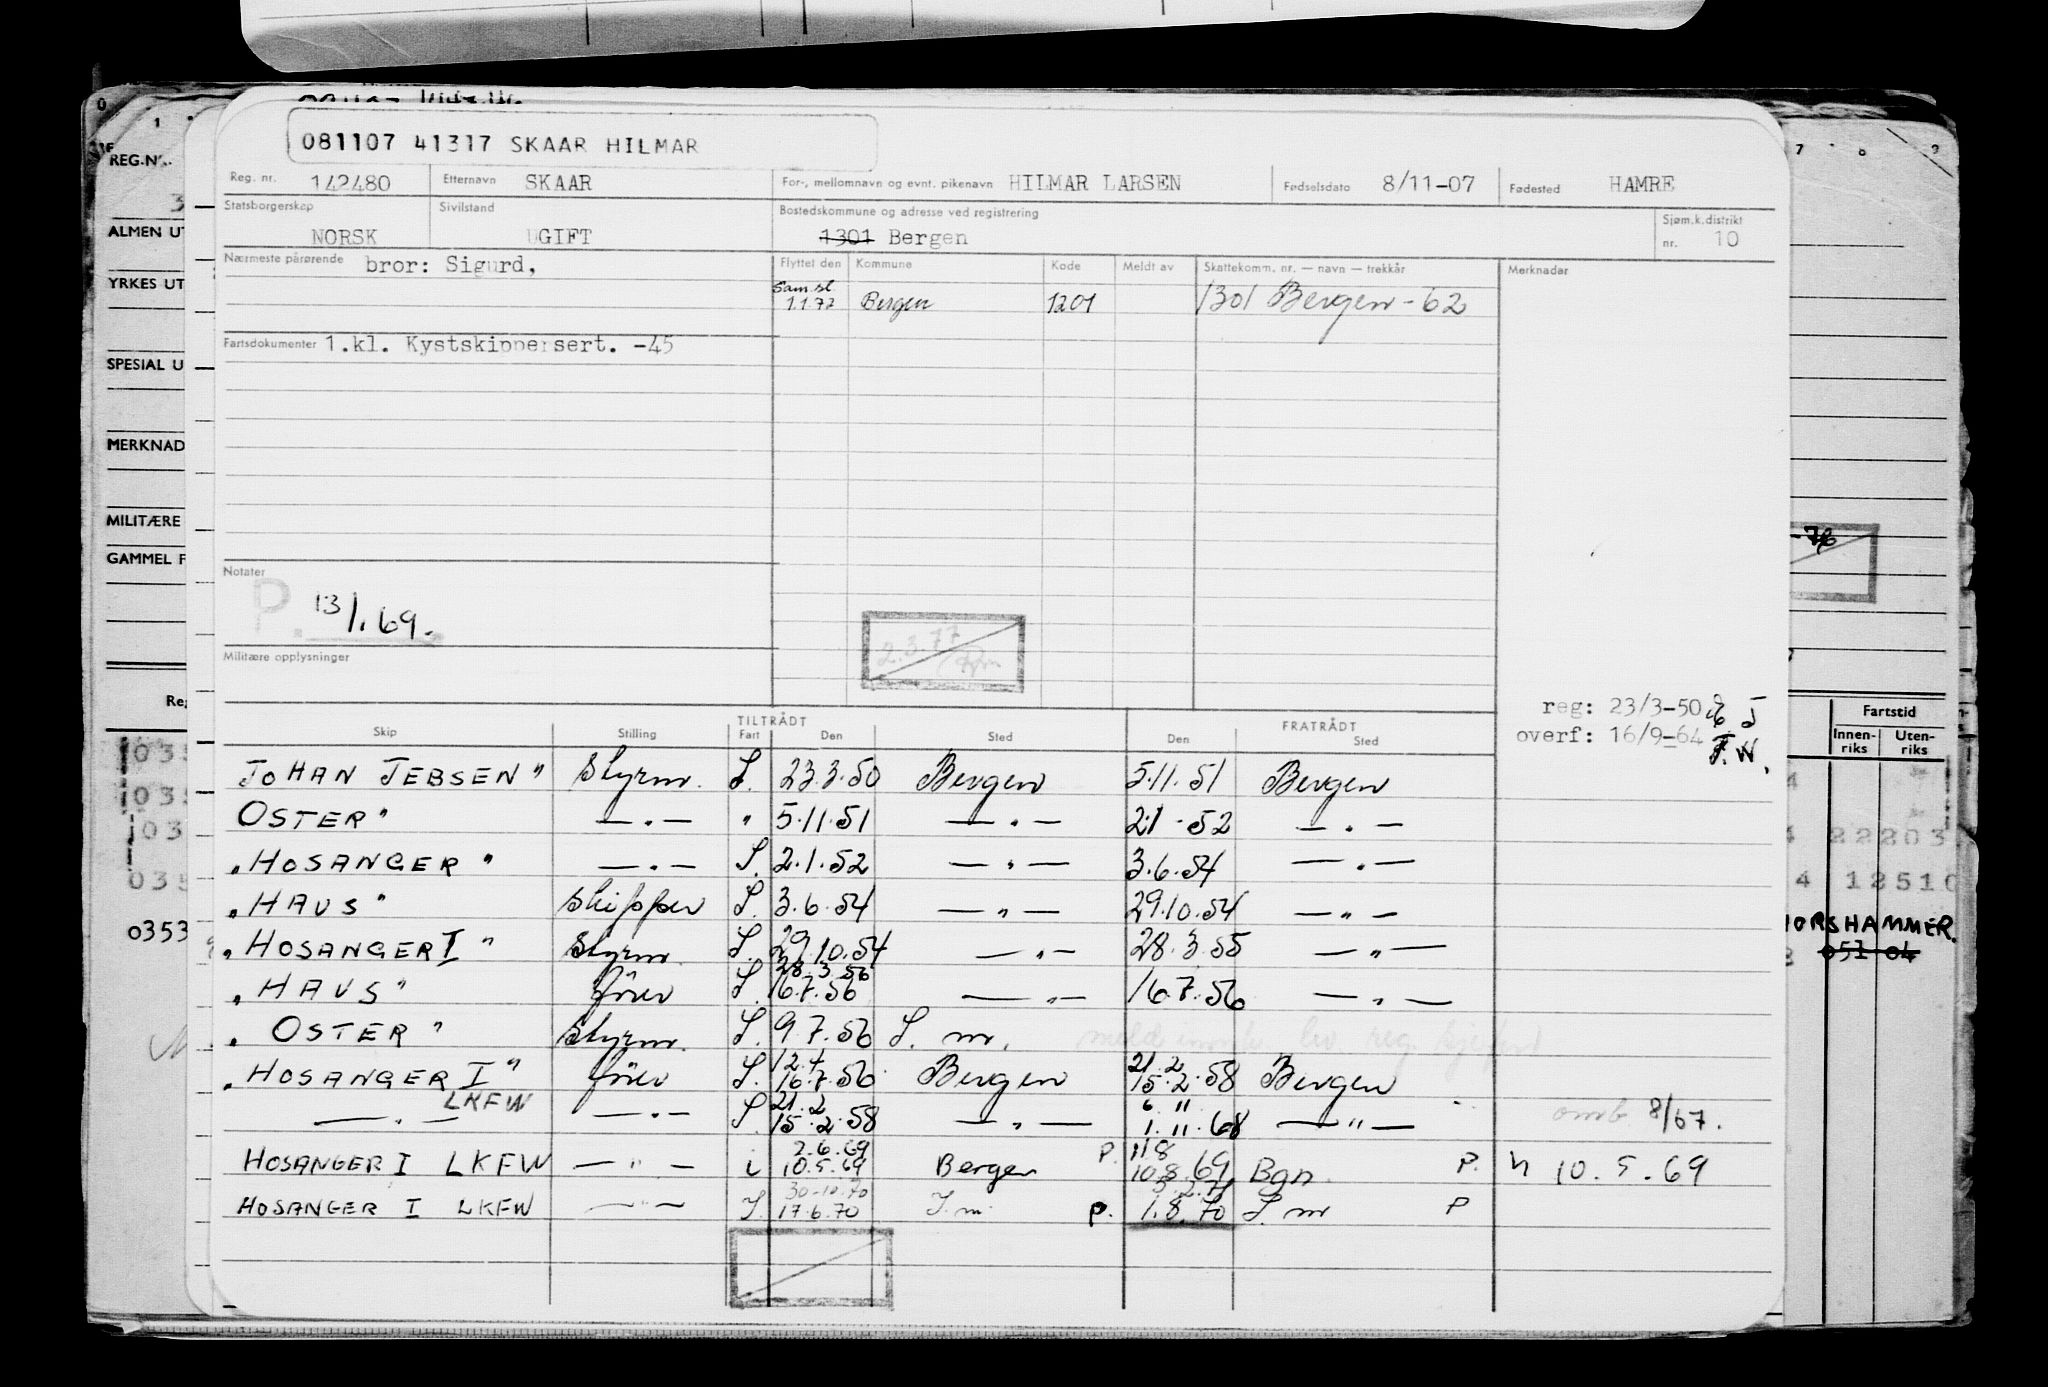 081107 41317 SKAAR HILMAR
Reg. nr. 142480 Etternavn SKAAR For-, mellomnavn og evnt. pikenavn HILMAR LARSEN Fødselsdato 8/11-07 Fødested HAMRE
Statsborgerskap NORSK Sivilstand UGIFT Bostedskommune og adresse ved registrering 1301 Bergen Sjøm.k.distrikt nr. 10
Nærmeste pårørende bror: Sigurd,
Flyttet den Kommune Kode Meldt av Skattekomm. nr. — navn — trekkår Merknader
Sam.sl.
1.1.72 Bergen 1201 1301 Bergen - 62
Fartsdokumenter 1.kl. Kystskippersert. -45
Notater
P. 13/1.69.
2.3.77
Militære opplysninger
reg: 23/3-50
overf: 16/9-64 J.W.
TILTRÅDT FRATRÅDT
Skip Stilling Fart Den Sted Den Sted
JOHAN JEBSEN" Styrm. L. 23.3.50 Bergen 5.11.51 Bergen
OSTER" — " — " 5.11.51 — " — 2.1-52 — " —
"HOSANGER" — " — L. 2.1.52 — " — 3.6.54 — " —
"HAUS" Skipper L. 3.6.54 — " — 29.10.54 — " —
"HOSANGER I" Styrm. L. 29.10.54 — " — 28.3.55 — " —
28.3.56
"HAUS" fører L. 16.7.56 — " — 16.7.56 — " —
"OSTER" Styrm. L. 9.7.56 L. m.
12.7 21.2
"HOSANGER I" fører L. 16.7.56 Bergen 15.2.58 Bergen
LKFW 21.2 6.11
— " — — " — L. 15.2.58 — " — 1.11.68 — " — omb 8/67.
2.6.69 11.8
HOSANGER I LKFW — " — i 10.5.69 Bergen P. 10.8.69 Bgn. P. 10.5.69
30-10.70 3.2.71
HOSANGER I LKFW — " — I. 17.6.70 I. m. P. 1.8.70 L. m P
REG.N
ALMEN UT
YRKES UT
SPESIAL U
MERKNAD
MILITÆRE
GAMMEL F
Re
035
035
03
035
0353
7 8 9
-76
Fartstid
Innen-riks Uten-riks
22203
4 12510
HORSHAMMER.
051 04